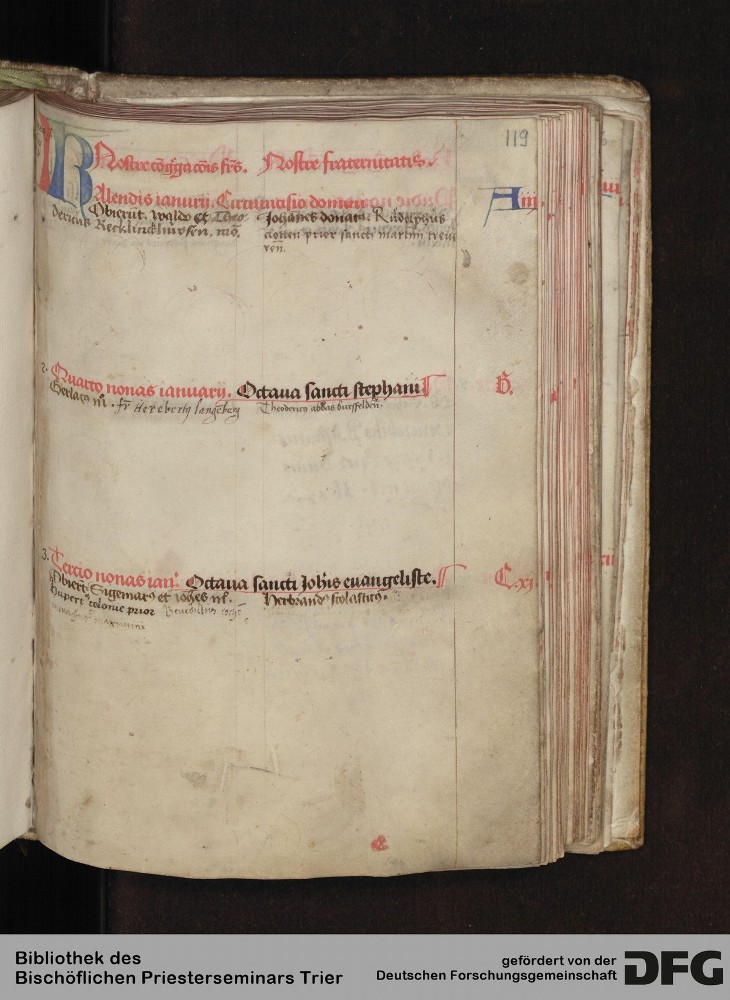 119
Nostre cōg̃gacōis fr̄s. Nostre fraternitatis.
KAlendis ianuarij. Circūcisio domini A iij
Obierūt. waldo et Theo- Johānes donatus Rudolphus
dericus Recklinckhusen. mō. prior sancti martini treue
reñ.
2. Quarto nonas ianuarij. Octaua sancti stephani B.
Gerlacus m̄. fr̄ Herebertus langeburg Theodericus abbas bursfelden.
3. Tercio nonas ian. Octaua sancti Joh̄is euangeliste. C. xj
Obierūt Sigemarus et ioh̄es m̄. Herbrandus scolasticus.
Hupertus colonie prior
Bibliothek des
Bischöflichen Priesterseminars Trier
gefördert von der
Deutschen Forschungsgemeinschaft DFG